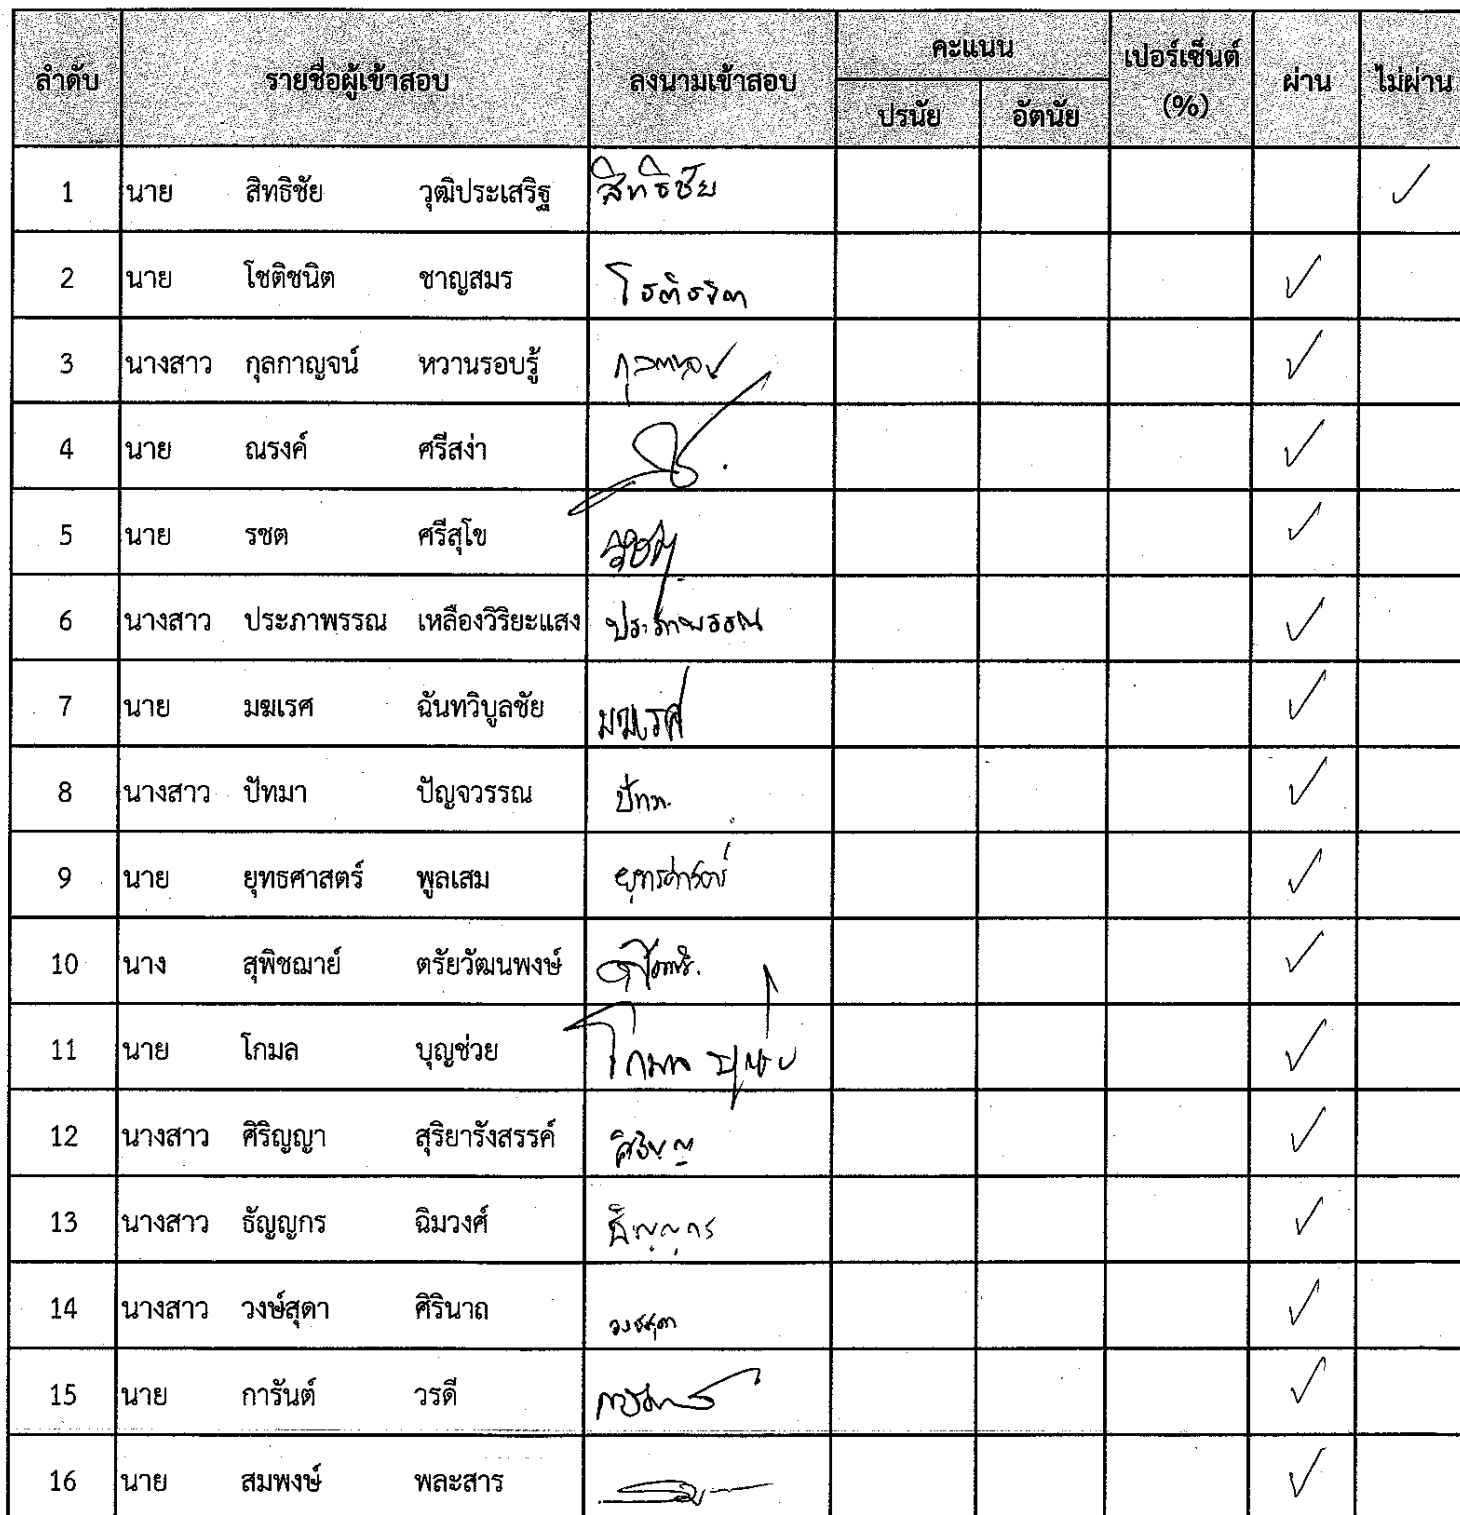 ลำดับ รายชื่อผู้เข้าสอบ ลงนามเข้าสอบ คะแนน เปอร์เซ็นต์ (%) ผ่าน ไม่ผ่าน
ปรนัย อัตนัย
1 นาย สิทธิชัย วุฒิประเสริฐ สิทธิชัย ✓
2 นาย โชติชนิต ชาญสมร โชติชนิต ✓
3 นางสาว กุลกาญจน์ หวานรอบรู้ ✓
4 นาย ณรงค์ ศรีสง่า ✓
5 นาย รชต ศรีสุโข ✓
6 นางสาว ประภาพรรณ เหลืองวิริยะแสง ประภาพรรณ ✓
7 นาย มฆเรศ ฉันทวิบูลชัย มฆเรศ ✓
8 นางสาว ปัทมา ปัญจวรรณ ✓
9 นาย ยุทธศาสตร์ พูลเสม ยุทธศาสตร์ ✓
10 นาง สุพิชฌาย์ ตรัยวัฒนพงษ์ ✓
11 นาย โกมล บุญช่วย โกมล ✓
12 นางสาว ศิริญญา สุริยารังสรรค์ ✓
13 นางสาว ธัญญกร ฉิมวงศ์ ธัญญกร ✓
14 นางสาว วงษ์สุดา ศิรินาถ ✓
15 นาย การันต์ วรดี ✓
16 นาย สมพงษ์ พละสาร ✓